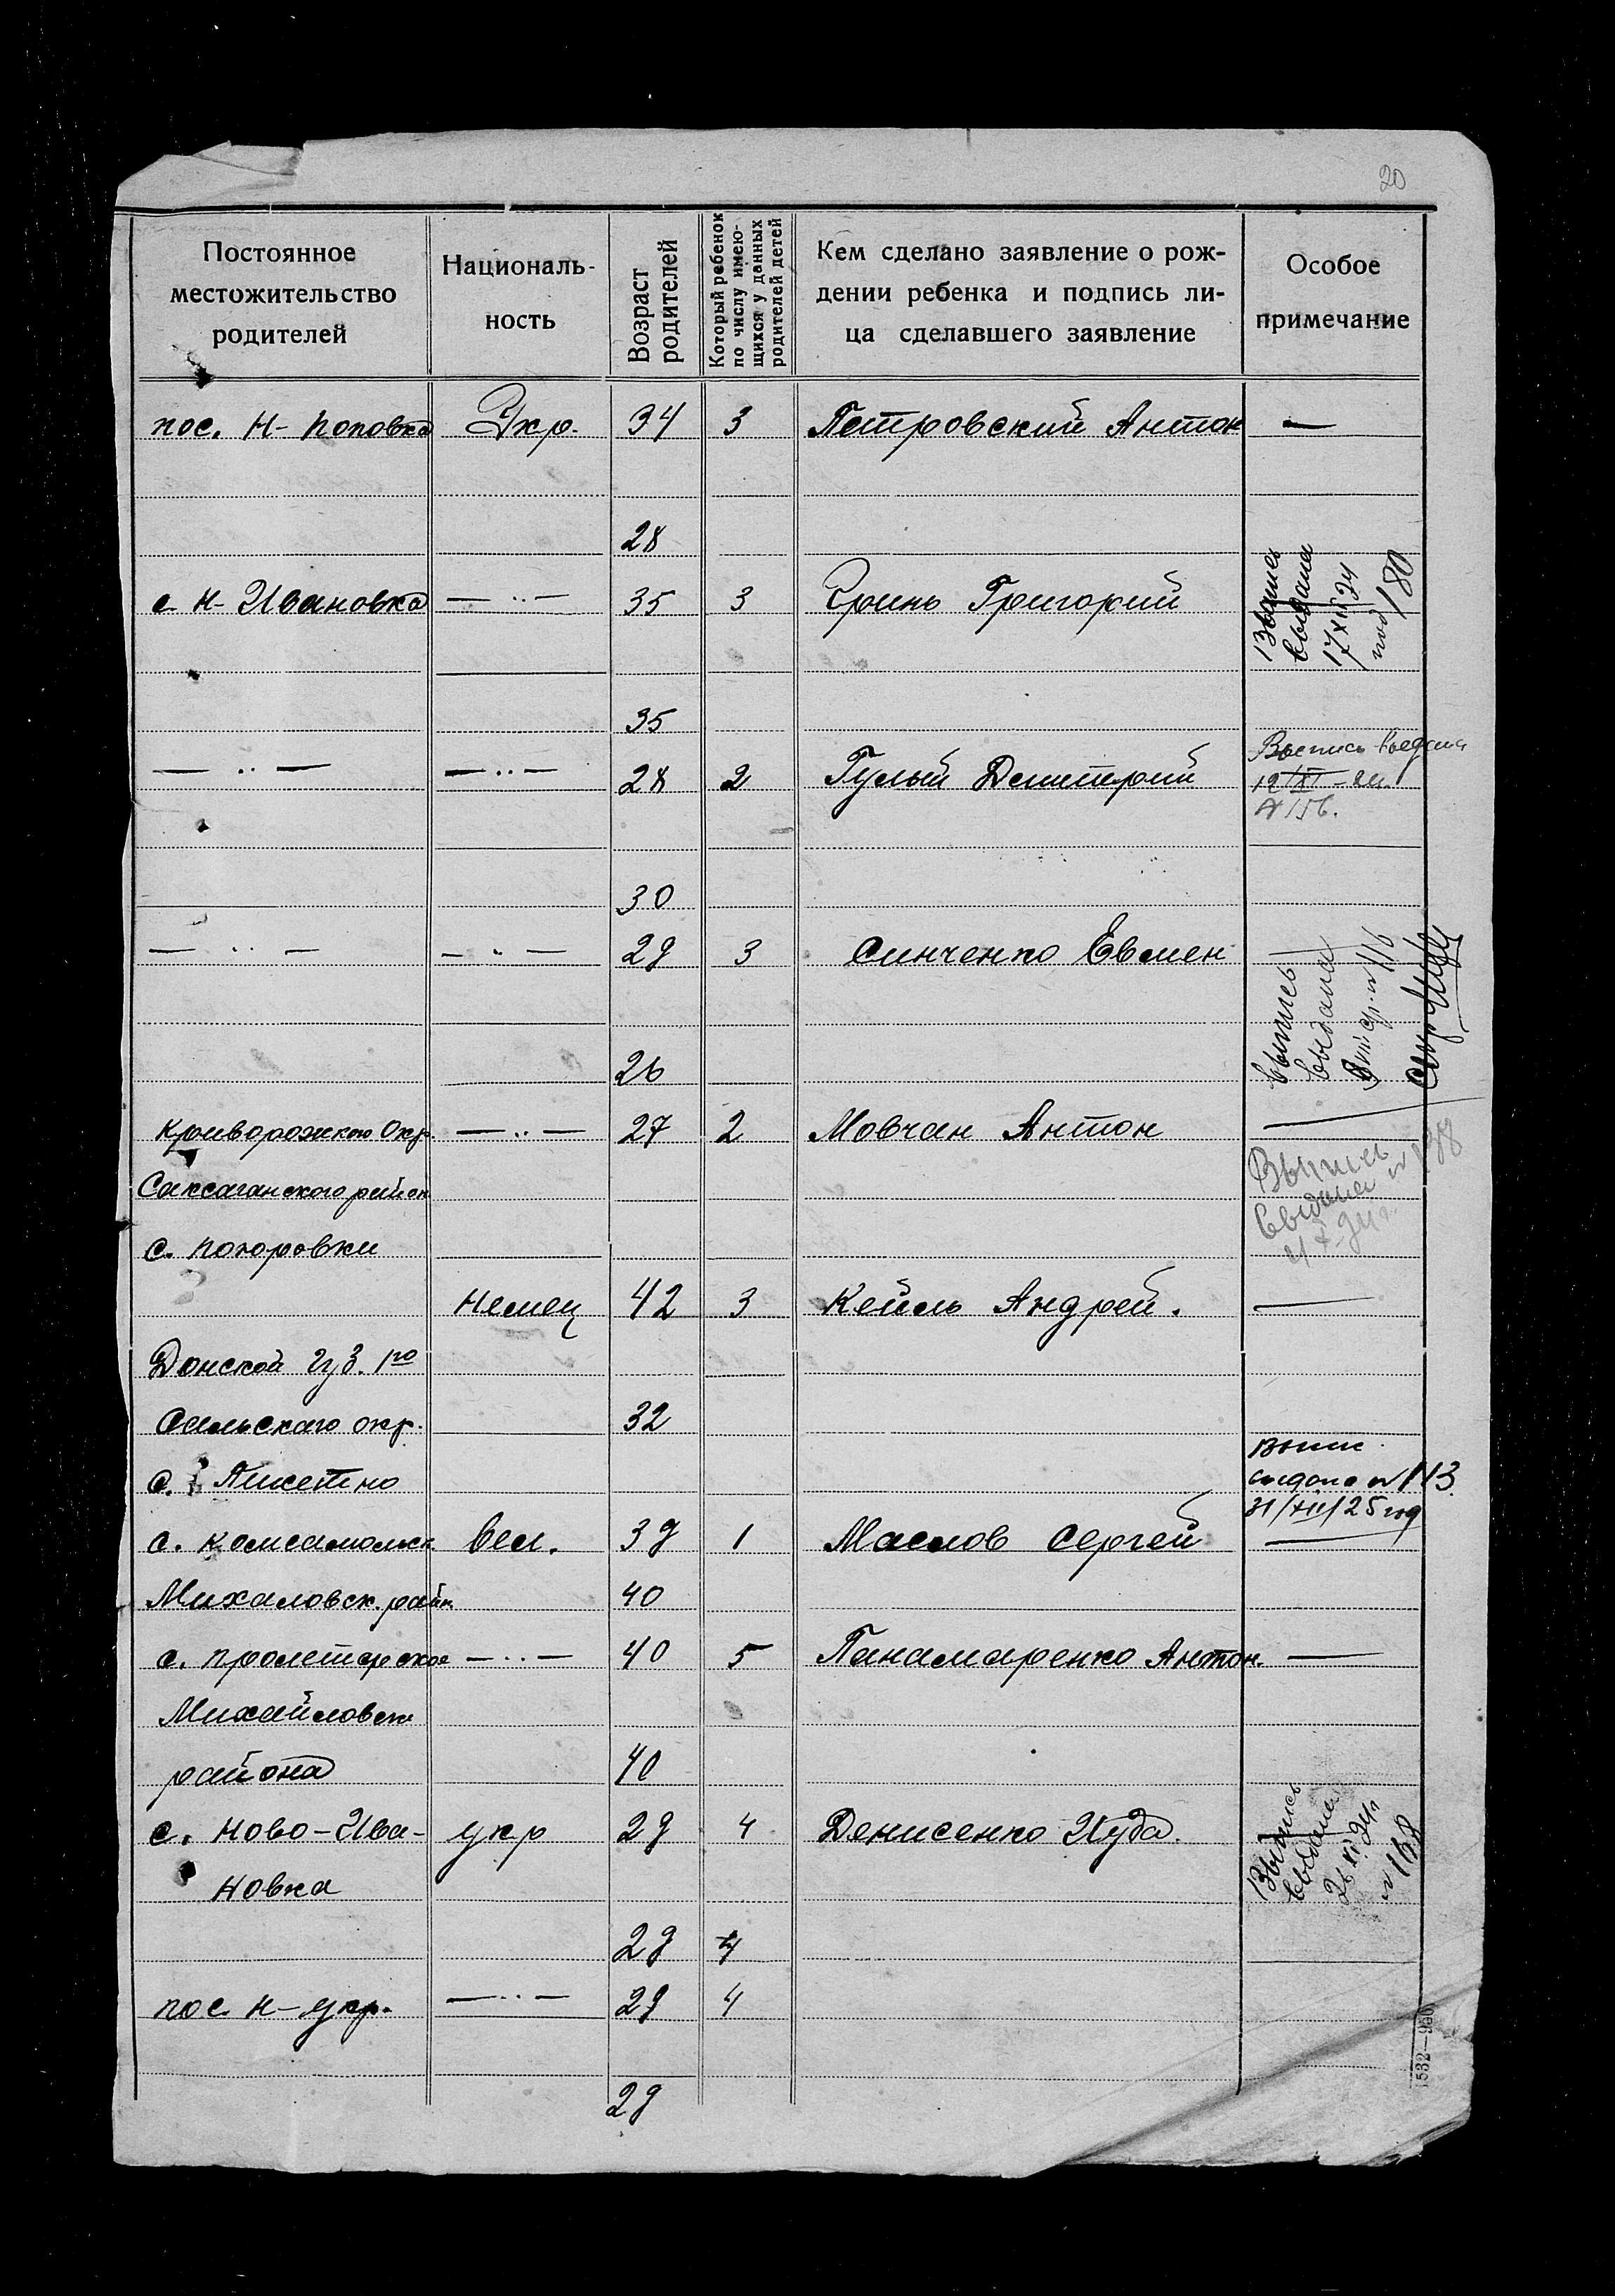 20
Постоянное
местожительство
родителей
Националь-
ность
Возраст
родителей
Который ребенок
по числу имею-
щихся у данных
родителей детей
Кем сделано заявление о рож-
дении ребенка и подпись ли-
ца сделавшего заявление
Особое
примечание
пос. Н- Поповка Укр. 34 3 Петровский Антон —
28
с. Н- Ивановка — ·· — 35 3 Гринь Григорий
Выпись
выдана
17 XII 24
под 180
35
— ·· — — ·· — 28 2 Гулый Дмитрий
Выпись выдана
12/XI-24.
№ 156.
30
— ·· — — ·· — 29 3 Синченко Евмен
выпись
выдана
№ 116
26
Криворожского Окр. — ·· — 27 2 Мовчан Антон —
Саксаганского район
с. Покоровки
Выпись
выдана №
Немец 42 3 Кейль Андрей. —
Донской губ. 1го
Сальскаго окр. 32
с. Пикетно
выпис
выдана № 113
31/XII/25 год
с. Комсамольск. Вел. 39 1 Маслов Сергей —
Михаловск. райн 40
с. Пролетарское — ·· — 40 5 Панамаренко Антон. —
Михайловск
района 40
с. Ново-Ива- укр 29 4 Денисенко Иуда.
новка
Выпись
выдана
26 XI 24
№ 168
29 4
пос Н- укр. — ·· — 29 4
29
532—960